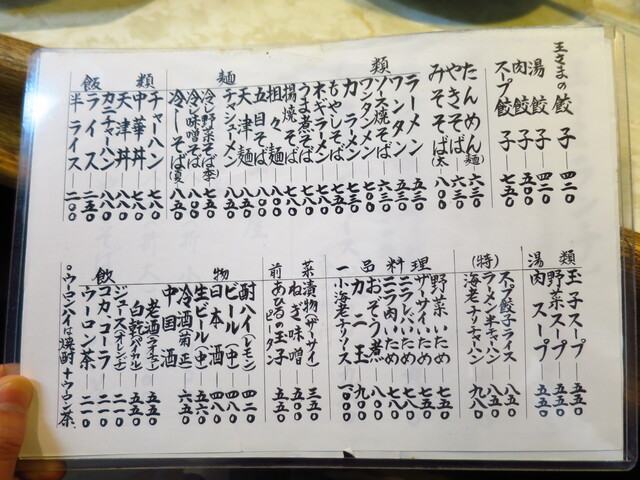 王さまの餃子 四二〇
湯餃子 四二〇
肉餃子 五五〇
スープ餃子 七五〇
麺類
たんめん(麺) 六三〇
やきそば 六三〇
みそそば(太) 八〇〇
ラーメン 五三〇
ワンタン 五三〇
ソース焼そば 六三〇
ワンタンメン 七〇〇
もやしそば 七八〇
ネギラーメン 七八〇
うま煮そば 八八〇
揚焼そば 八八〇
担々麺 八八〇
五目そば 八八〇
天津麺 八八〇
チャシューメン 八五〇
冷し野菜そば(冬季) 七五〇
冷し味噌そば 八五〇
冷しそば(夏) 八五〇
飯類
チャーハン 七八〇
中華丼 七八〇
天津丼 八八〇
カニチャーハン 八八〇
ライス 二五〇
半ライス 二〇〇
湯類
玉子スープ 五五〇
野菜スープ 五五〇
肉スープ 五五〇
(特)
スープ餃子ライス 八五〇
ラーメン半チャハン 八五〇
海老チャーチャハン 九八〇
一品料理
野菜いため 七五〇
ザーサイいため 七五〇
ニラレバいため 七八〇
ニラ肉いため 七八〇
おぞう煮 八〇〇
カニ玉 九〇〇
小海老チリソース 一〇〇〇
前菜
漬物(ザーサイ) 三五〇
ねぎ味噌 三五〇
あひるの玉子ピータン 五五〇
飲物
酎ハイ(レモン) 四二〇
ビール(中) 四八〇
日本酒 四八〇
生ビール(中) 五六〇
冷酒(菊正) 六五〇
中国酒
老酒(ライチュウ) 五五〇
白乾(パイカル) 五五〇
ジュース(オレンジ) 二一〇
コカ・コーラ 二一〇
ウーロン茶 二一〇
○ウーロンハイは焼酎+ウーロン茶